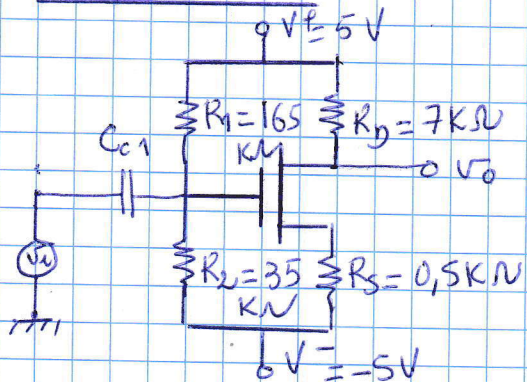 V⁺= 5 V
R1=165 KΩ
RD=7KΩ
Cc1
vo
vi
R2=35 KΩ
RS=0,5KΩ
V⁻=-5V